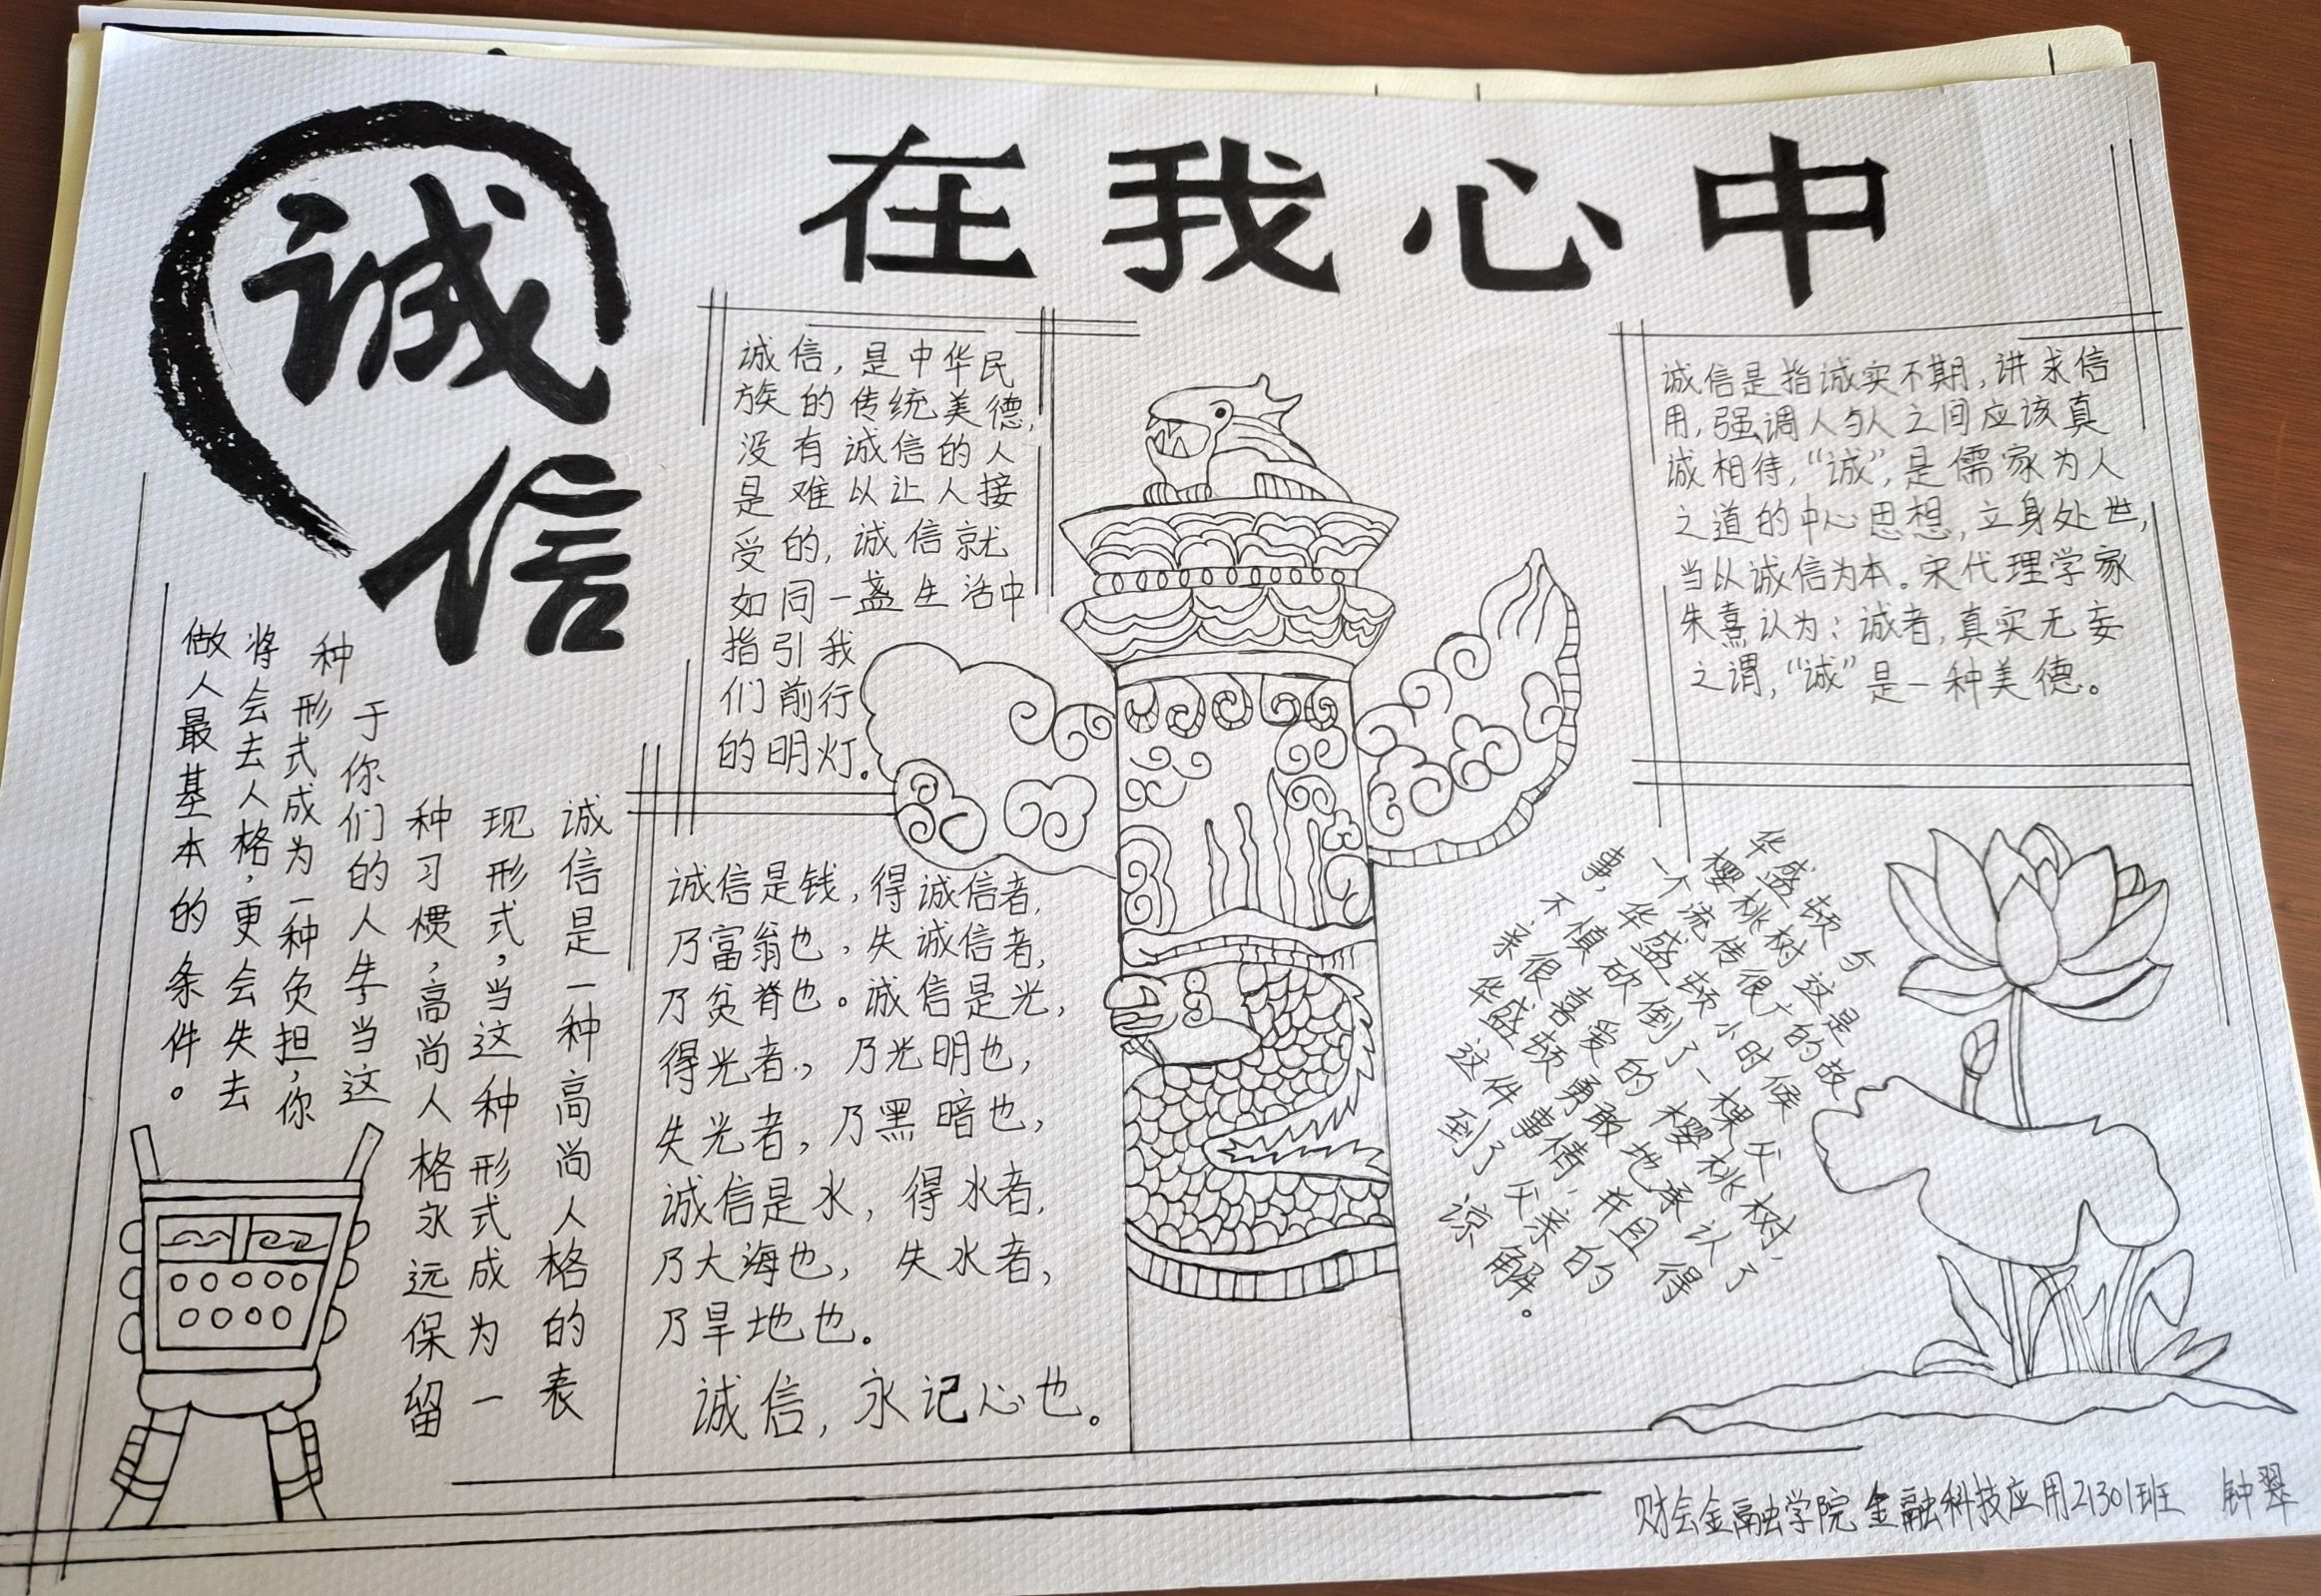 诚信
在我心中
诚信，是中华民
族的传统美德，
没有诚信的人
是难以让人接
受的，诚信就
如同一盏生活中
指引我
们前行
的明灯。
诚信是指诚实不期，讲求信
用，强调人与人之间应该真
诚相待，“诚”，是儒家为人
之道的中心思想，立身处世，
当以诚信为本。宋代理学家
朱熹认为：诚者，真实无妄
之谓，“诚”是一种美德。
诚信是一种高尚人格的表
现形式，当这种形式成为一
种习惯，高尚人格永远保留
于你们的人生当这
种形式成为一种负担，你
将会去人格，更会失去
做人最基本的条件。
诚信是钱，得诚信者，
乃富翁也，失诚信者，
乃贫脊也。诚信是光，
得光者，乃光明也，
失光者，乃黑暗也，
诚信是水，得水者，
乃大海也，失水者，
乃旱地也。
诚信，永记心也。
华盛顿与
樱桃树这是
一个流传很广的故
事，华盛顿小时候
不慎砍倒了一棵父
亲很喜爱的樱桃树，
华盛顿勇敢地承认了
这件事情，并且得
到了父亲的
谅解。
财会金融学院 金融科技应用21301班 钟翠